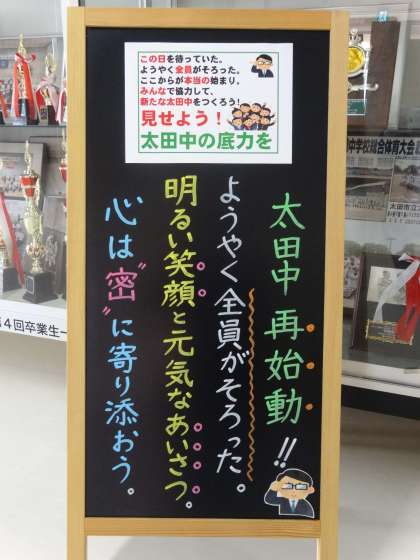 この日を待っていた。
ようやく全員がそろった。
ここからが本当の始まり。
みんなで協力して、
新たな太田中をつくろう!
見せよう!
太田中の底力を
太田中 再始動!!
ようやく全員がそろった。
明るい笑顔と元気なあいさつ。
心は"密"に寄り添おう。
中学校総合体育大会
第4回卒業生一